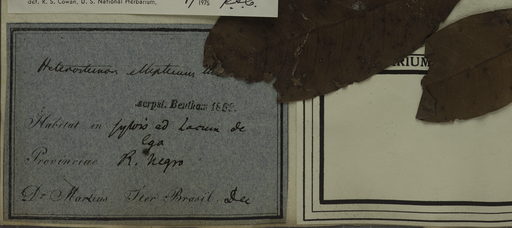 det. R. S. Cowan, U. S. National Herbarium, 1975
RIUM
Heterostemon ellipticus
scrpsi. Bentham 18
Habitat in sylvis ad Lacum de
Ega
Provinciae R. Negro
Dr Martius Iter Brasil. Dec